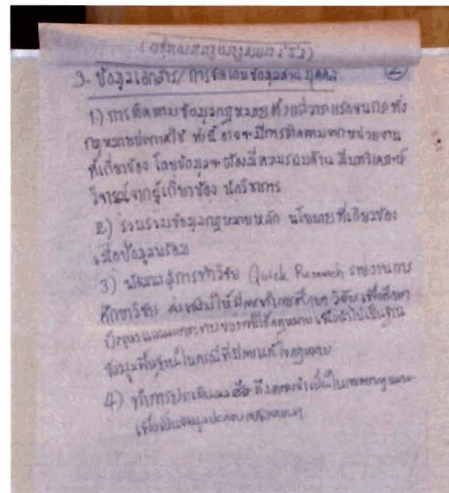 3. ข้อมูลเอกสาร/ การจัดเก็บข้อมูลส่วนบุคคล 2
1.) การติดตามข้อมูลกฎหมายตั้งแต่วาระแรกจนกระทั่ง
กฎหมายประกาศใช้ ทั้งนี้ อาจจะมีการติดตามจากหน่วยงาน
ที่เกี่ยวข้อง โดยข้อมูลจะต้องมีความรอบด้าน มีบทวิเคราะห์
วิจารณ์จากผู้เกี่ยวข้อง นักวิชาการ
2) รวบรวมข้อมูลกฎหมายหลัก นโยบายที่เกี่ยวข้อง
เมื่อข้อมูลพร้อม
3) พัฒนาสู่การทำวิจัย Quick Research รายงานการ
ศึกษาวิจัย ส่งเสริมให้มีการทำการศึกษา วิจัย เพื่อศึกษา
ปัญหาและผลกระทบของการใช้กฎหมาย เพื่อนำไปเป็นฐาน
ข้อมูลพื้นฐานในกรณีที่มีการแก้ไขกฎหมาย
4) ทำการประเมินผล ถึงความจำเป็นในการออกกฎหมาย
เพื่อเป็นข้อมูลประกอบ